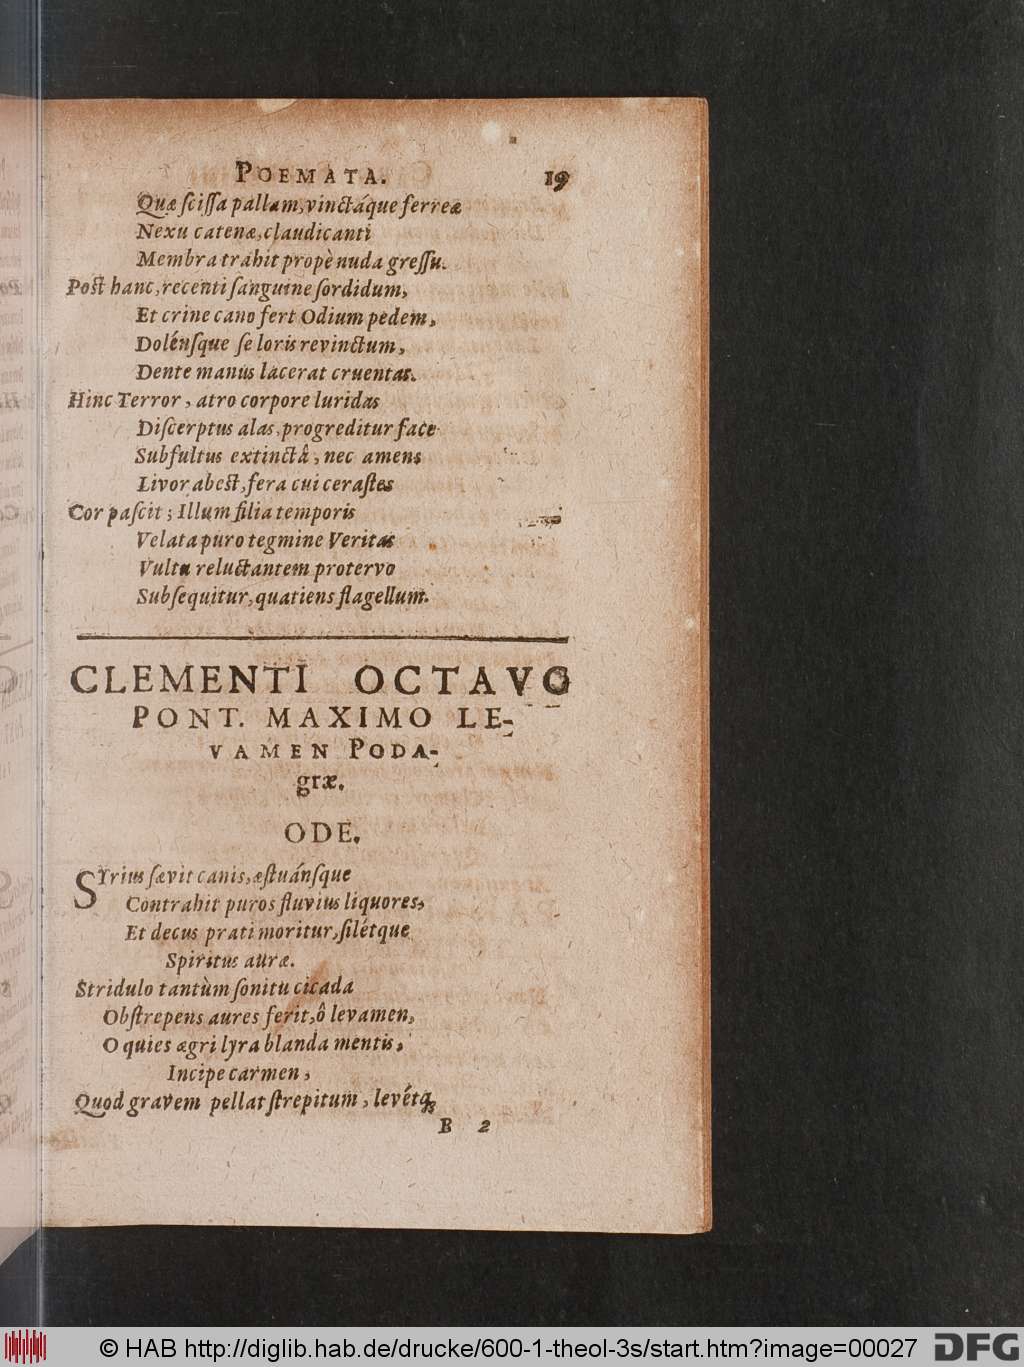 POEMATA. 19
Quæ ſciſſa pallam, vinctáque ferreæ
Nexu catenæ, claudicanti
Membra trahit propè nuda greſſu.
Poſt hanc, recenti ſanguine ſordidum,
Et crine cano fert Odium pedem,
Dolénſque ſe loris revinctum,
Dente manus lacerat cruentas.
Hinc Terror, atro corpore luridas
Diſcerptus alas, progreditur face
Subfultus extinctâ, nec amens
Livor abeſt, fera cui ceraſtes
Cor paſcit; Illum filia temporis
Velata puro tegmine Veritas
Vultu reluctantem protervo
Subſequitur, quatiens flagellum.
CLEMENTI OCTAVO
PONT. MAXIMO LE-
VAMEN PODA-
græ.
ODE.
SIrius ſævit canis, æſtuánſque
Contrahit puros fluvius liquores,
Et decus prati moritur, ſilétque
Spiritus auræ.
Stridulo tantùm ſonitu cicada
Obſtrepens aures ferit, ô levamen,
O quies ægri lyra blanda mentis,
Incipe carmen,
Quod gravem pellat ſtrepitum, levétq;
B 2
© HAB http://diglib.hab.de/drucke/600-1-theol-3s/start.htm?image=00027
DFG